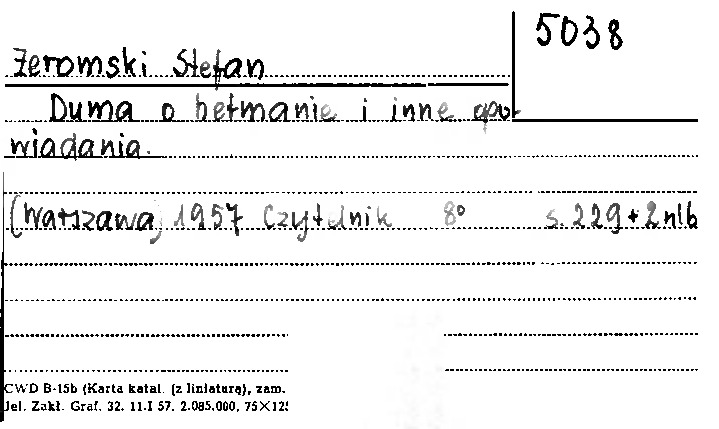 5038
Żeromski Stefan
Duma o hetmanie i inne opo-
wiadania.
(Warszawa) 1957 Czytelnik 8° s. 229 + 2 nlb
CWD B-15b (Karta katal. (z liniaturą), zam.
Jel. Zakł. Graf. 32. 11.I 57. 2.085.000, 75×125